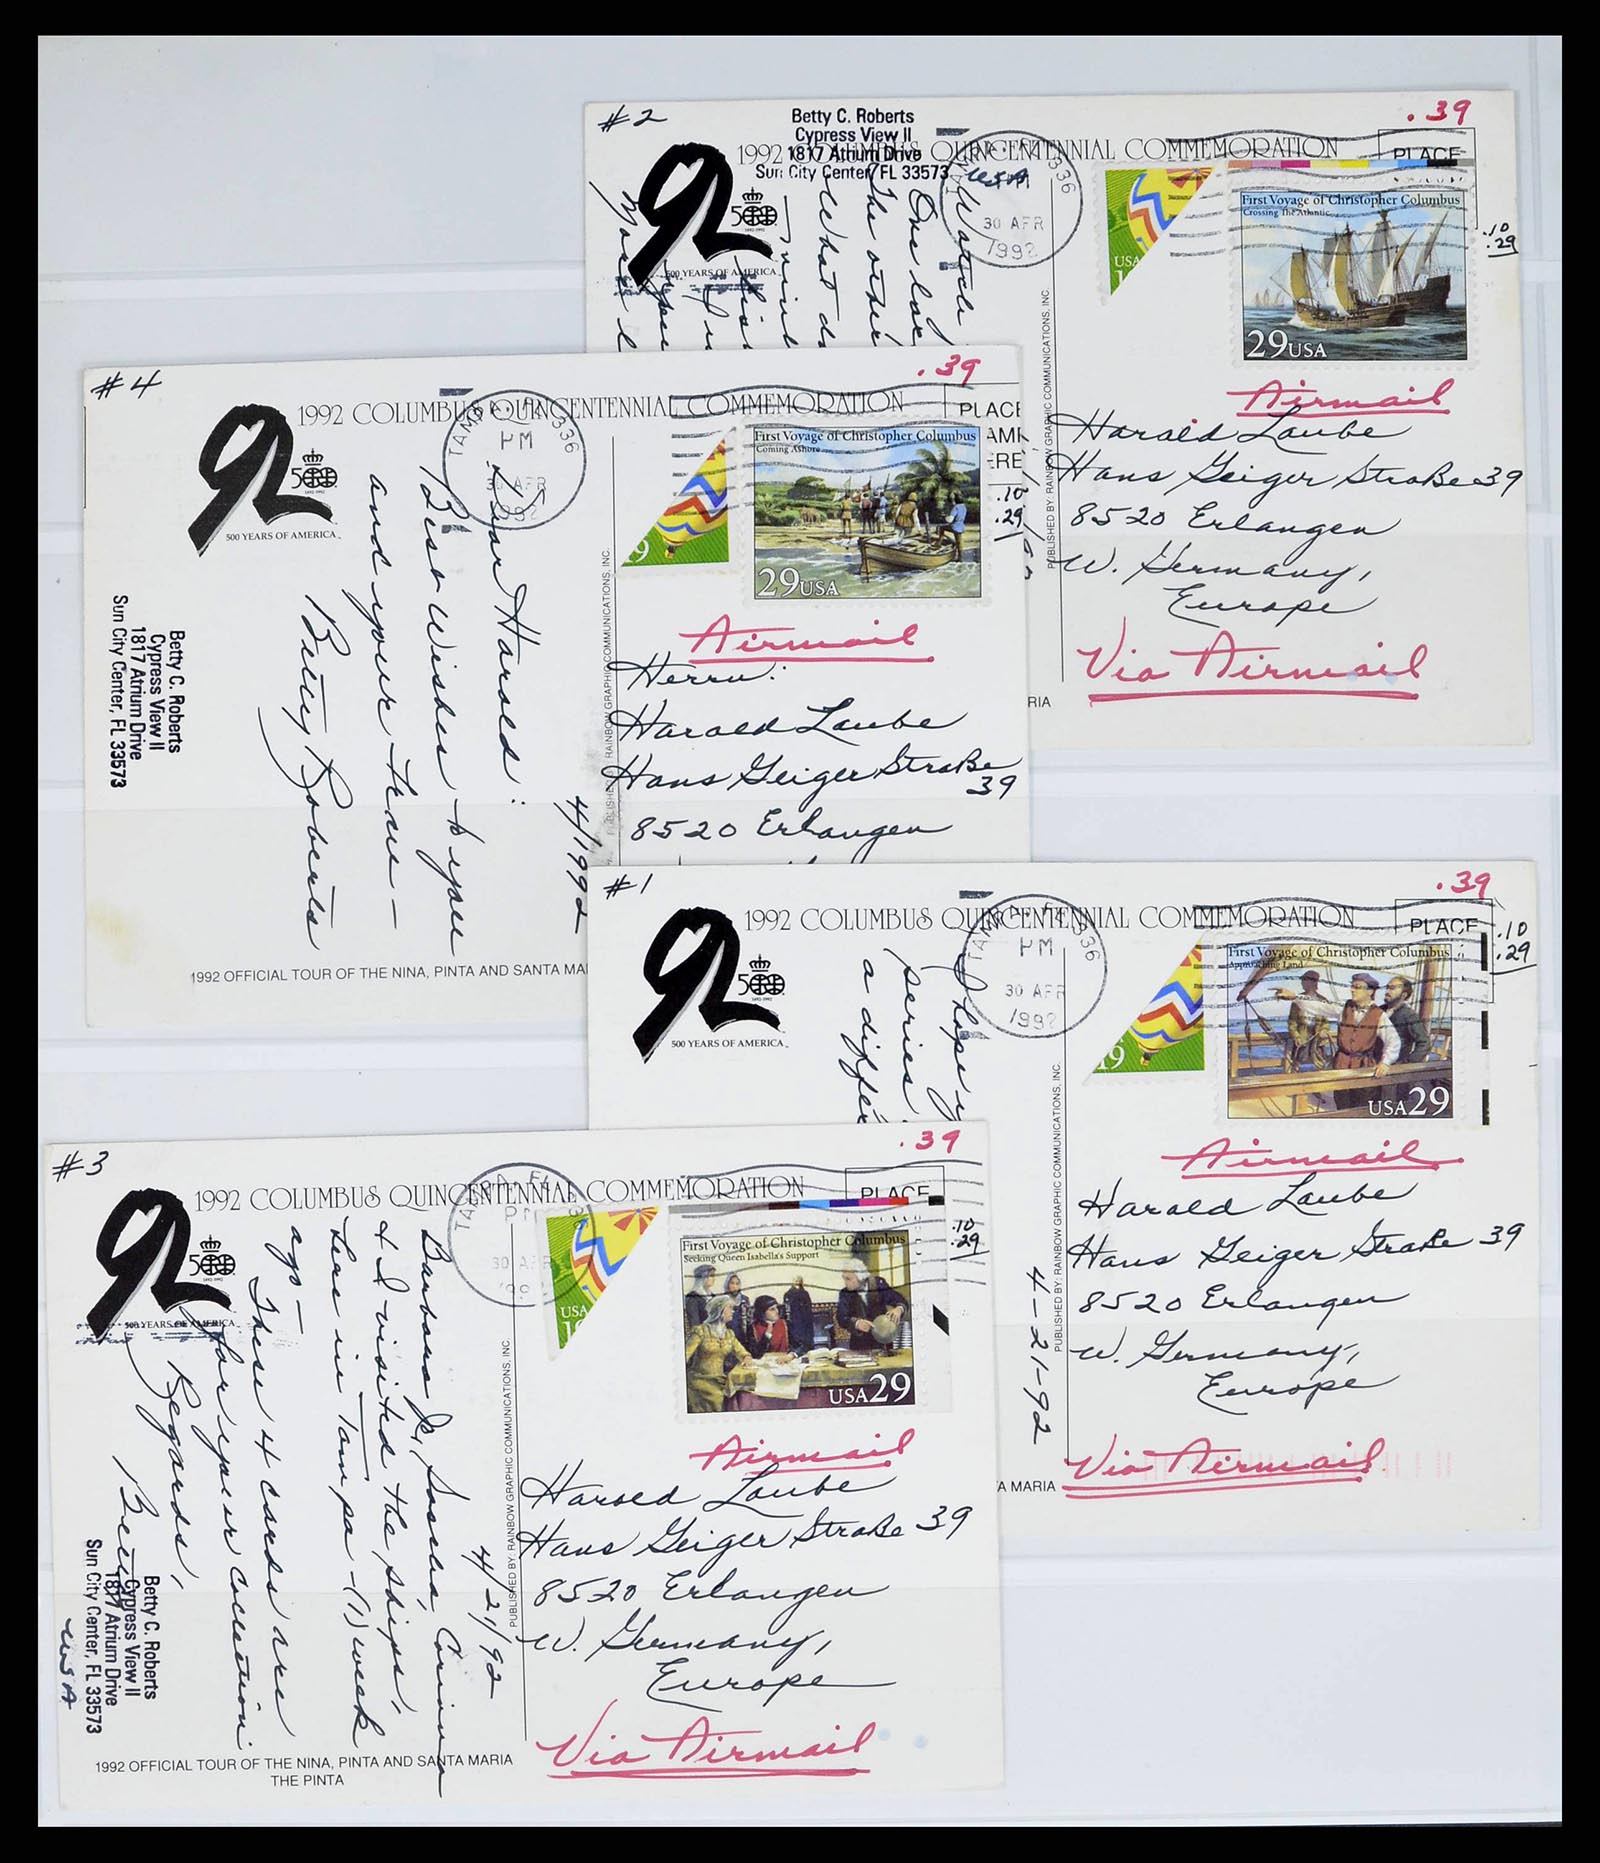 #2
Betty C. Roberts
Cypress View II
1817 Atrium Drive
Sun City Center, FL 33573
USA
.39
1992 COLUMBUS QUINCENTENNIAL COMMEMORATION
PLACE
92
500
1492-1992
500 YEARS OF AMERICA
30 APR
1992
336
USA
First Voyage of Christopher Columbus
Crossing The Atlantic
29USA
.10
.29
Watch
One
The other
What
PUBLISHED BY: RAINBOW GRAPHIC COMMUNICATIONS, INC.
Airmail
Harald Laube
Hans Geiger Straße 39
8520 Erlangen
W. Germany,
Europe
Via Airmail
RIA
#4
.39
1992 COLUMBUS QUINCENTENNIAL COMMEMORATION
PLACE
92
500
1492-1992
500 YEARS OF AMERICA
TAMPA, FL 336
PM
30 APR
1992
9
First Voyage of Christopher Columbus
Coming Ashore
29USA
.10
.29
4/1992
Dear Harald:
Best Wishes to you
and your team –
Betty Roberts
Betty C. Roberts
Cypress View II
1817 Atrium Drive
Sun City Center, FL 33573
RAINBOW GRAPHIC COMMUNICATIONS, INC.
Airmail
Herrn:
Harald Laube
Hans Geiger Straße
39
8520 Erlangen
1992 OFFICIAL TOUR OF THE NINA, PINTA AND SANTA MA
#1
.39
1992 COLUMBUS QUINCENTENNIAL COMMEMORATION
PLACE
92
500
1492-1992
500 YEARS OF AMERICA
PM
30 APR
1992
336
19
First Voyage of Christopher Columbus
Approaching Land
USA29
.10
.29
I hope
series
a differ
4-21-92
PUBLISHED BY: RAINBOW GRAPHIC COMMUNICATIONS, INC.
Airmail
Harald Laube
Hans Geiger Straße 39
8520 Erlangen
W. Germany,
Europe
Via Airmail
A MARIA
#3
.39
1992 COLUMBUS QUINCENTENNIAL COMMEMORATION
PLACE
92
500
1492-1992
500 YEARS OF AMERICA
PM
30 APR
USA
First Voyage of Christopher Columbus
Seeking Queen Isabella's Support
USA29
.10
.29
4/21/92
& I visited the ships,
here in Tampa – (1) week
ago –
These 4 cards are
for your collection
Regards,
Betty
Betty C. Roberts
Cypress View II
1817 Atrium Drive
Sun City Center, FL 33573
USA
PUBLISHED BY: RAINBOW GRAPHIC COMMUNICATIONS, INC.
Airmail
Harald Laube
Hans Geiger Straße 39
8520 Erlangen
W. Germany,
Europe
Via Airmail
1992 OFFICIAL TOUR OF THE NINA, PINTA AND SANTA MARIA
THE PINTA